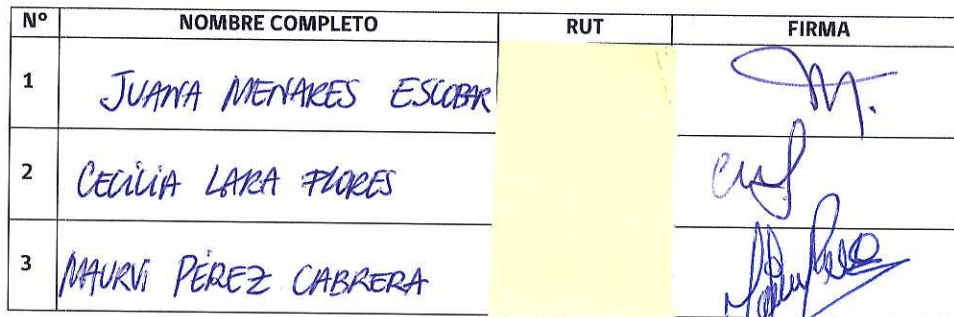 Nº NOMBRE COMPLETO RUT FIRMA
1 JUANA MENARES ESCOBAR
2 CECILIA LARA FLORES
3 MAURVI PÉREZ CABRERA